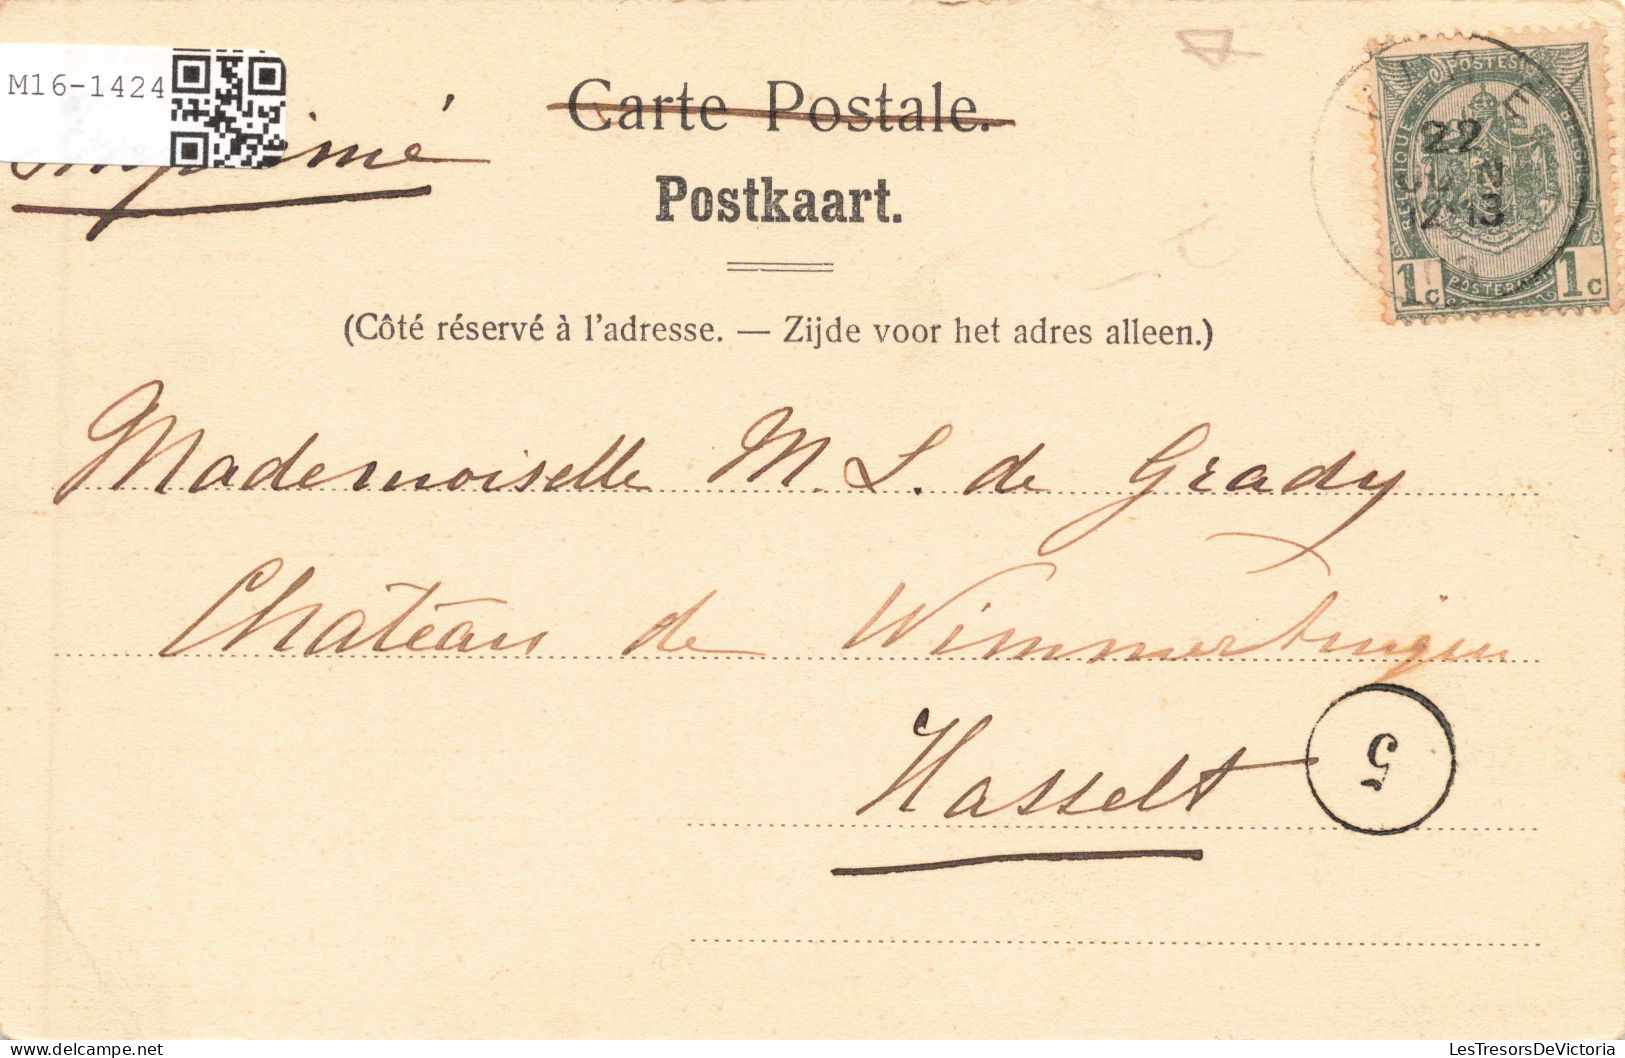 M16-1424
Imprimé
Carte Postale.
Postkaart.
(Côté réservé à l'adresse. — Zijde voor het adres alleen.)
POSTES
BELGIQUE
BELGIE
22
JUIN
12-13
1c
1c
Mademoiselle M. L. de Grady
Château de Wimmertingen
Hasselt
5
LesTresorsDeVictoria